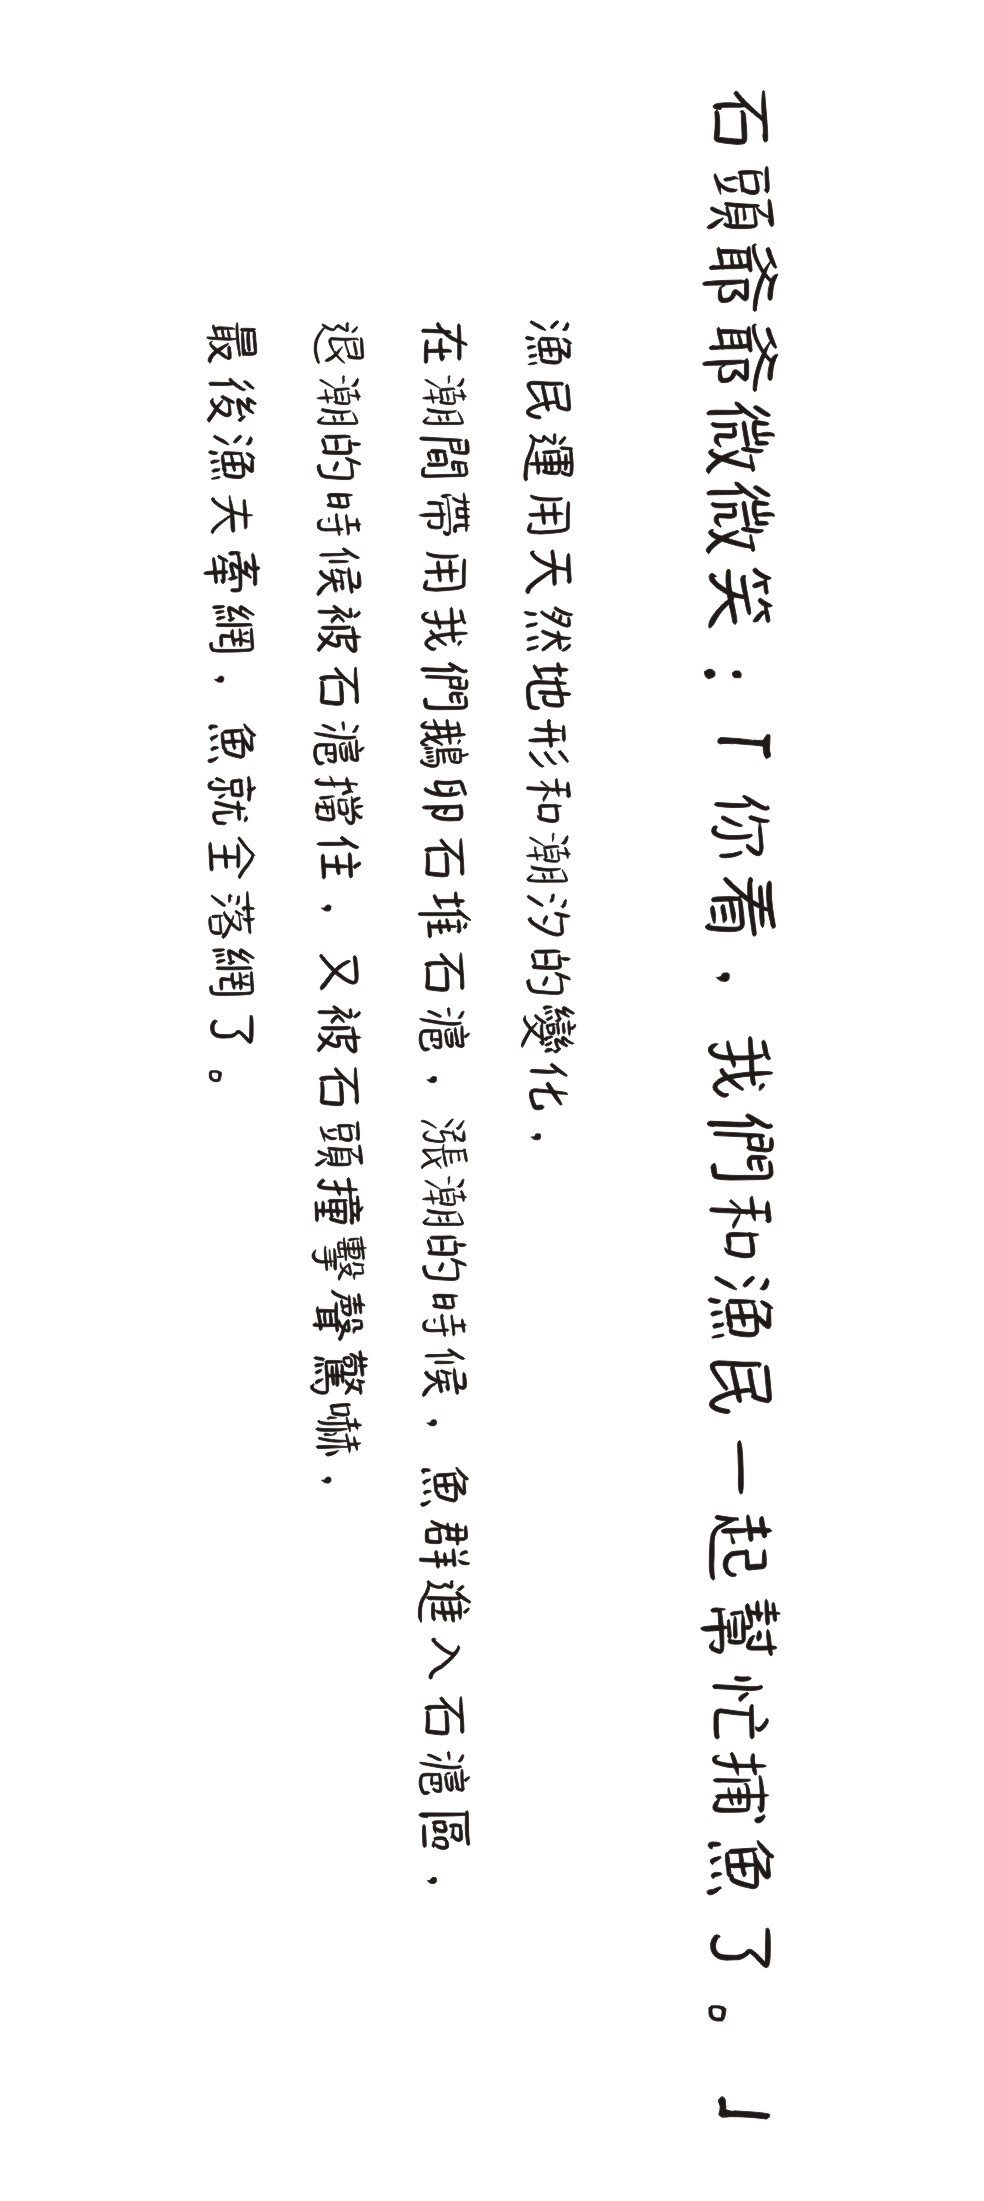 石頭爺爺微微笑：「你看，我們和漁民一起幫忙捕魚了。」
漁民運用天然地形和潮汐的變化，
在潮間帶用我們鵝卵石堆石滬，漲潮的時候，魚群進入石滬區，
退潮的時候被石滬擋住，又被石頭撞擊聲驚嚇，
最後漁夫牽網，魚就全落網了。